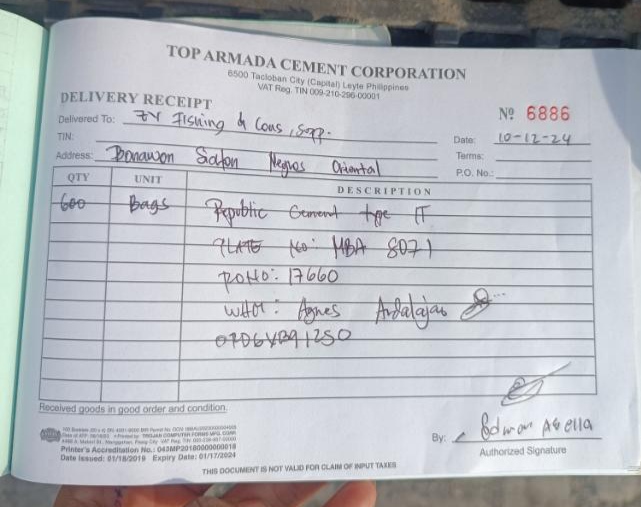 TOP ARMADA CEMENT CORPORATION
6500 Tacloban City (Capital) Leyte Philippines
VAT Reg. TIN 009-210-296-00001
DELIVERY RECEIPT
Nº 6886
Delivered To: ZY Fishing & Cons, Supp.
Date: 10-12-24
TIN:
Terms:
Address: Bonawon Siaton Negros Oriental
P.O. No.:
QTY UNIT DESCRIPTION
600 Bags Republic Cement type 1T
PLATE NO: MBA 8071
PO NO: 17660
WHM: Agnes Andalajao
0706VB91250
Received goods in good order and condition.
Printer's Accreditation No.: 043MP20180000000018
Date Issued: 01/18/2019 Expiry Date: 01/17/2024
By: Edwar Abella
Authorized Signature
THIS DOCUMENT IS NOT VALID FOR CLAIM OF INPUT TAXES